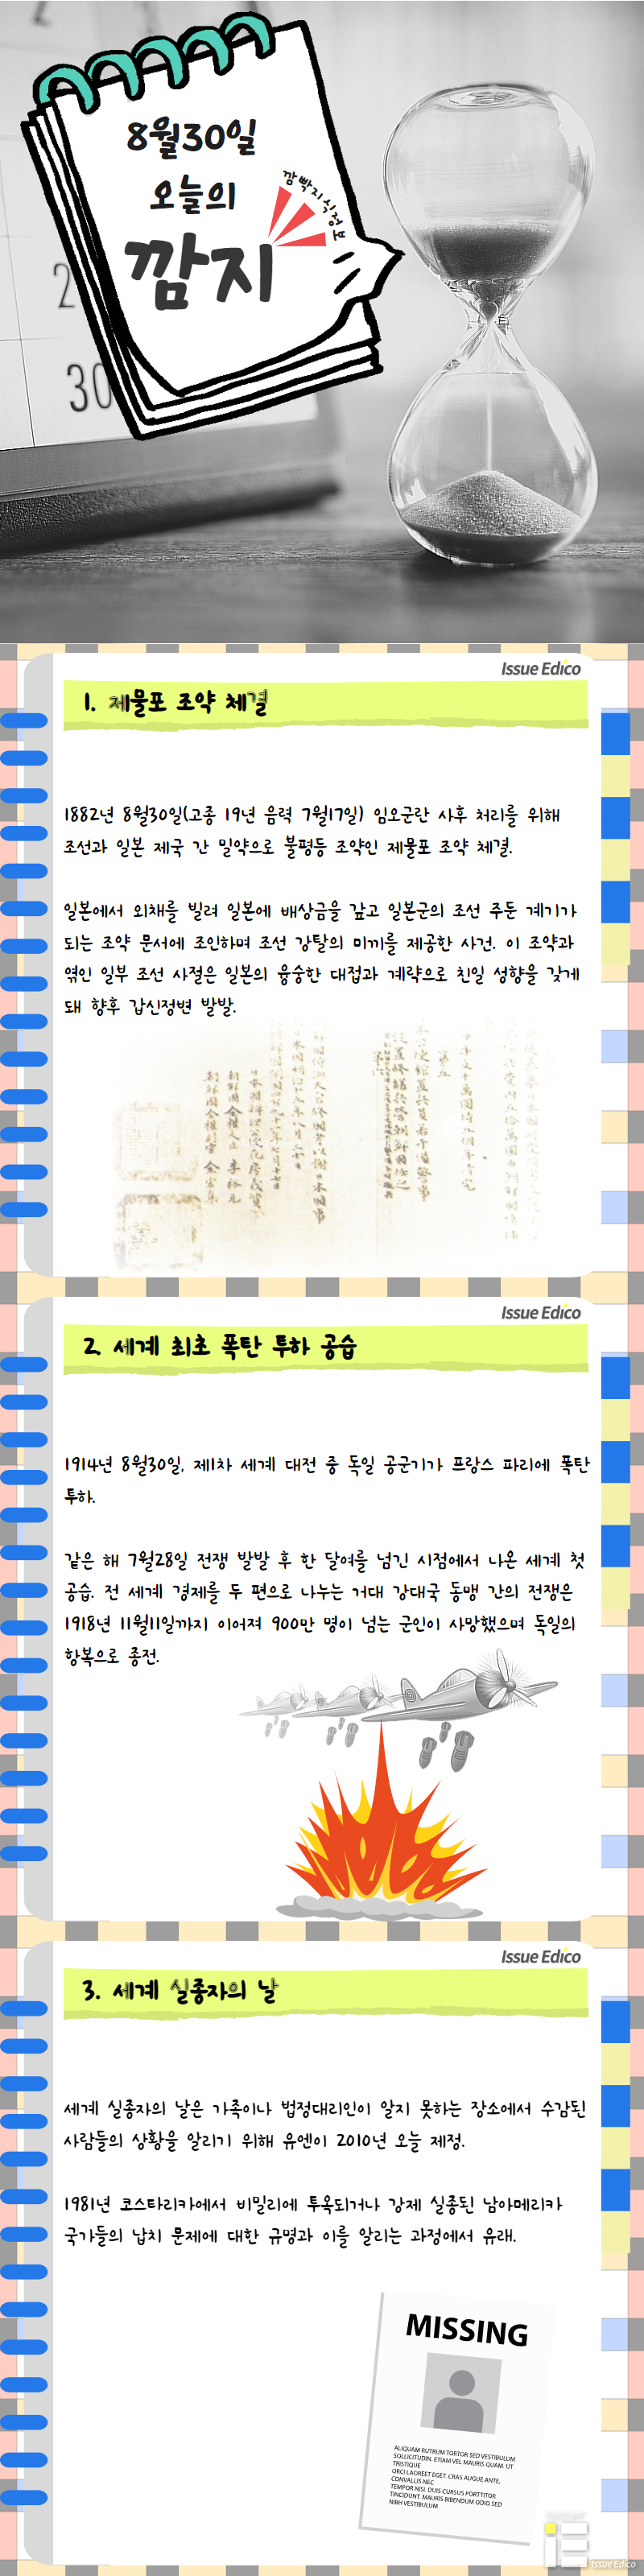 8월30일
오늘의
깜빡지식정보
깜지
2
30
Issue Edico
1. 제물포 조약 체결
1882년 8월30일(고종 19년 음력 7월17일) 임오군란 사후 처리를 위해
조선과 일본 제국 간 밀약으로 불평등 조약인 제물포 조약 체결.
일본에서 외채를 빌려 일본에 배상금을 갚고 일본군의 조선 주둔 계기가
되는 조약 문서에 조인하며 조선 강탈의 미끼를 제공한 사건. 이 조약과
엮인 일부 조선 사절은 일본의 융숭한 대접과 계략으로 친일 성향을 갖게
돼 향후 갑신정변 발발.
Issue Edico
2. 세계 최초 폭탄 투하 공습
1914년 8월30일, 제1차 세계 대전 중 독일 공군기가 프랑스 파리에 폭탄
투하.
같은 해 7월28일 전쟁 발발 후 한 달여를 넘긴 시점에서 나온 세계 첫
공습. 전 세계 경제를 두 편으로 나누는 거대 강대국 동맹 간의 전쟁은
1918년 11월11일까지 이어져 900만 명이 넘는 군인이 사망했으며 독일의
항복으로 종전.
Issue Edico
3. 세계 실종자의 날
세계 실종자의 날은 가족이나 법정대리인이 알지 못하는 장소에서 수감된
사람들의 상황을 알리기 위해 유엔이 2010년 오늘 제정.
1981년 코스타리카에서 비밀리에 투옥되거나 강제 실종된 남아메리카
국가들의 납치 문제에 대한 규명과 이를 알리는 과정에서 유래.
MISSING
ALIQUAM RUTRUM TORTOR SED VESTIBULUM
SOLLICITUDIN. ETIAM VEL MAURIS QUAM. UT
TRISTIQUE
ORCI LAOREET EGET. CRAS AUGUE ANTE,
CONVALLIS NEC
TEMPOR NISI. DUIS CURSUS PORTTITOR
TINCIDUNT. MAURIS BIBENDUM ODIO SED
NIBH VESTIBULUM
iE
Issue Edico